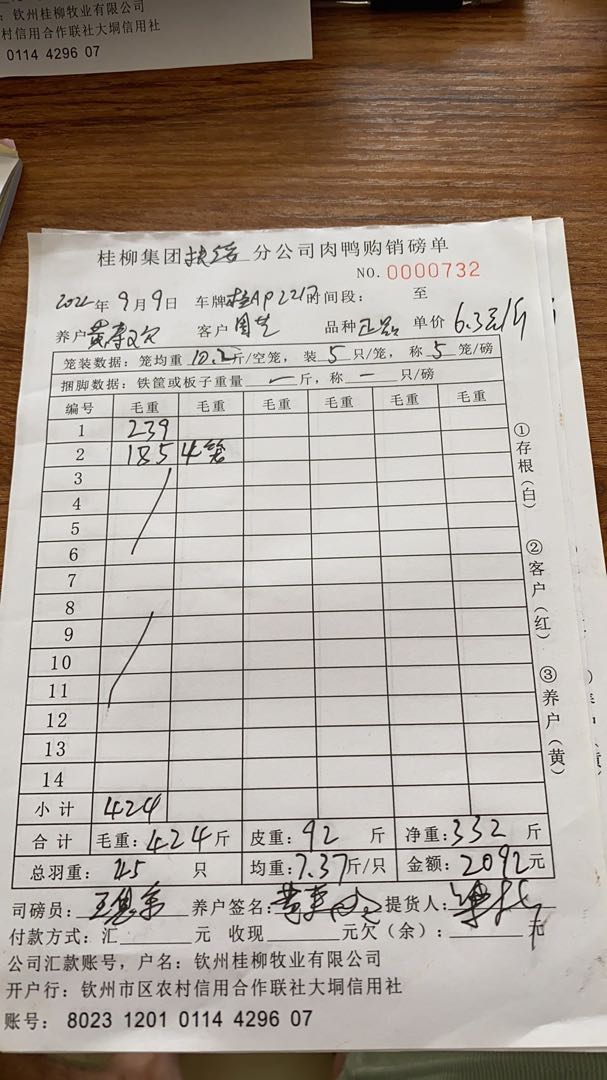 ：钦州桂柳牧业有限公司
村信用合作联社大垌信用社
0114 4296 07
桂柳集团扶绥分公司肉鸭购销磅单
NO.0000732
2022年9月9日 车牌桂AP2217时间段： 至
养户 客户 品种正品 单价6.3元/斤
笼装数据：笼均重10.2斤/空笼，装5只/笼，称5笼/磅
捆脚数据：铁筐或板子重量 一 斤，称 一 只/磅
编号 毛重 毛重 毛重 毛重 毛重 毛重
1 239
2 185 4笼
3
4
5
6
7
8
9
10
11
12
13
14
小计 424
合计 毛重：424斤 皮重：92斤 净重：332斤
总羽重：45只 均重：7.37斤/只 金额：2092元
司磅员： 养户签名： 提货人：
付款方式：汇____元 收现____元欠（余）：____元
公司汇款账号，户名：钦州桂柳牧业有限公司
开户行：钦州市区农村信用合作联社大垌信用社
账号：8023 1201 0114 4296 07
①存根（白）
②客户（红）
③养户（黄）